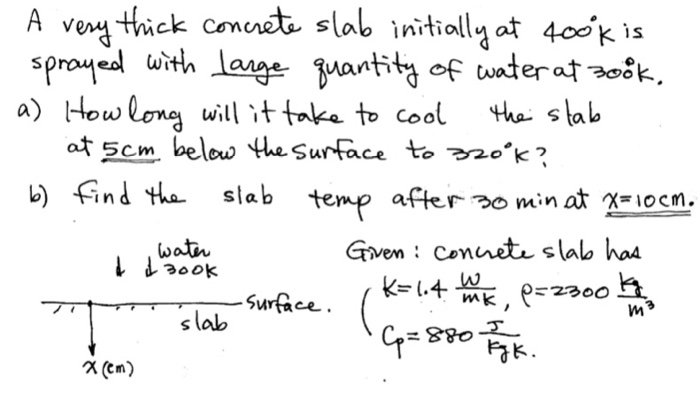 A very thick concrete slab initially at 400°K is
sprayed with large quantity of water at 300°K.
a) How long will it take to cool the slab
at 5cm below the surface to 320°K?
b) find the slab temp after 30 min at x=10cm.
water
300K
surface.
slab
x (cm)
Given : concrete slab has
K=1.4 W/mK, ρ=2300 kg/m³
Cp=880 J/KgK.